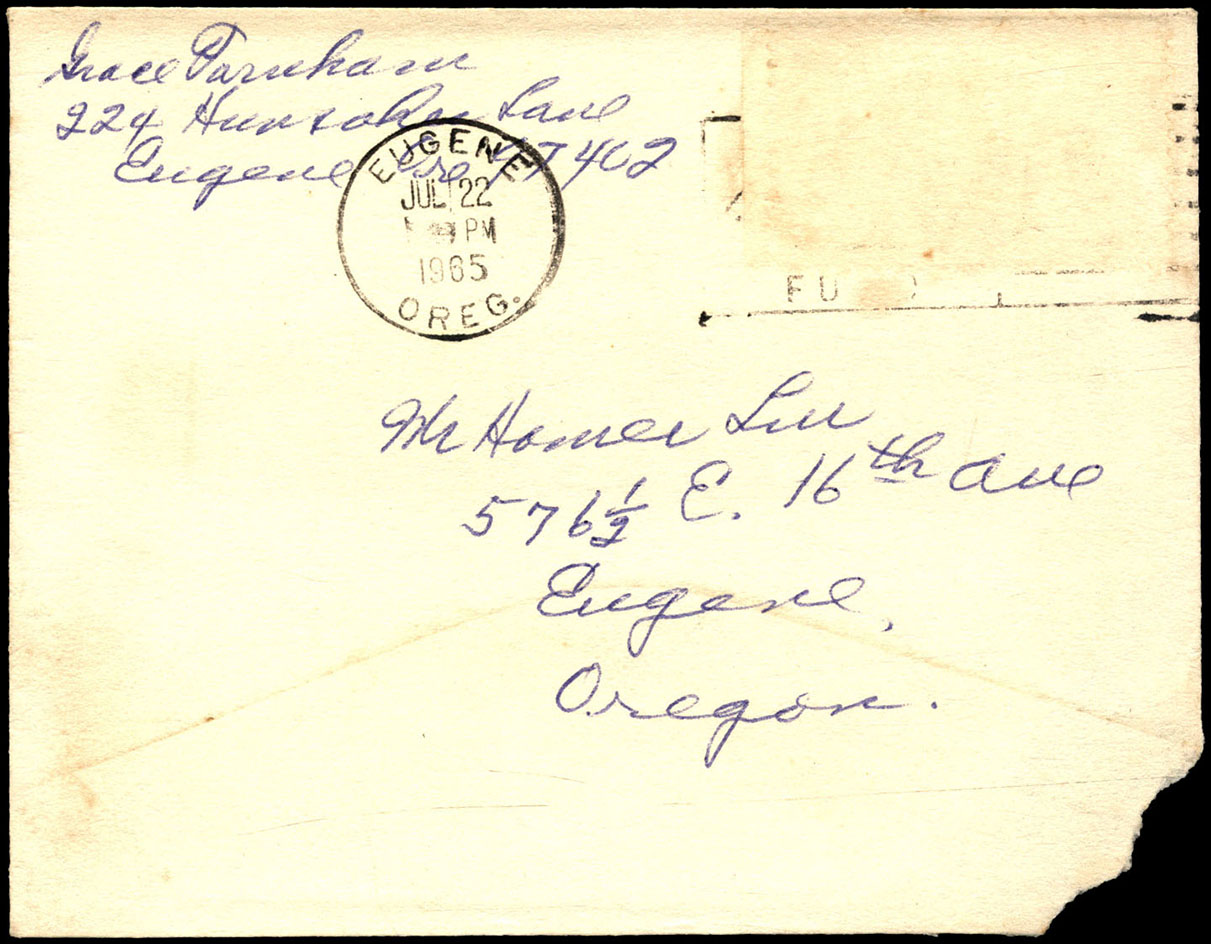 Grace Farnham
224 Hunsaker Lane
Eugene Ore 97402
EUGENE
JUL 22
PM
1965
OREG.
FU
Mr Homer
576½ E. 16th Ave
Eugene,
Oregon.